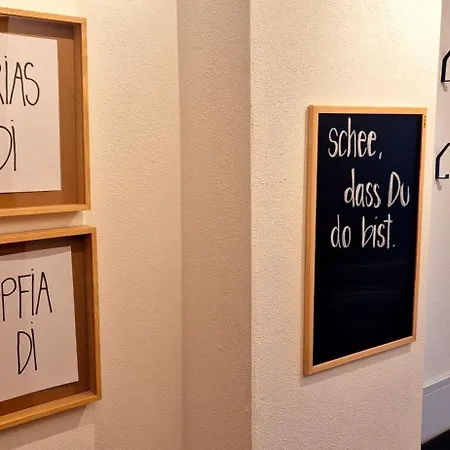 RIAS
Di
PFiA
Di
schee,
dass Du
do bist.